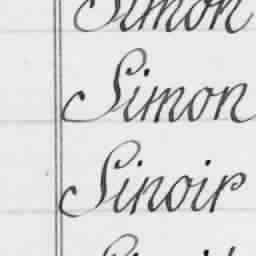 Simon
Simon
Sinoir